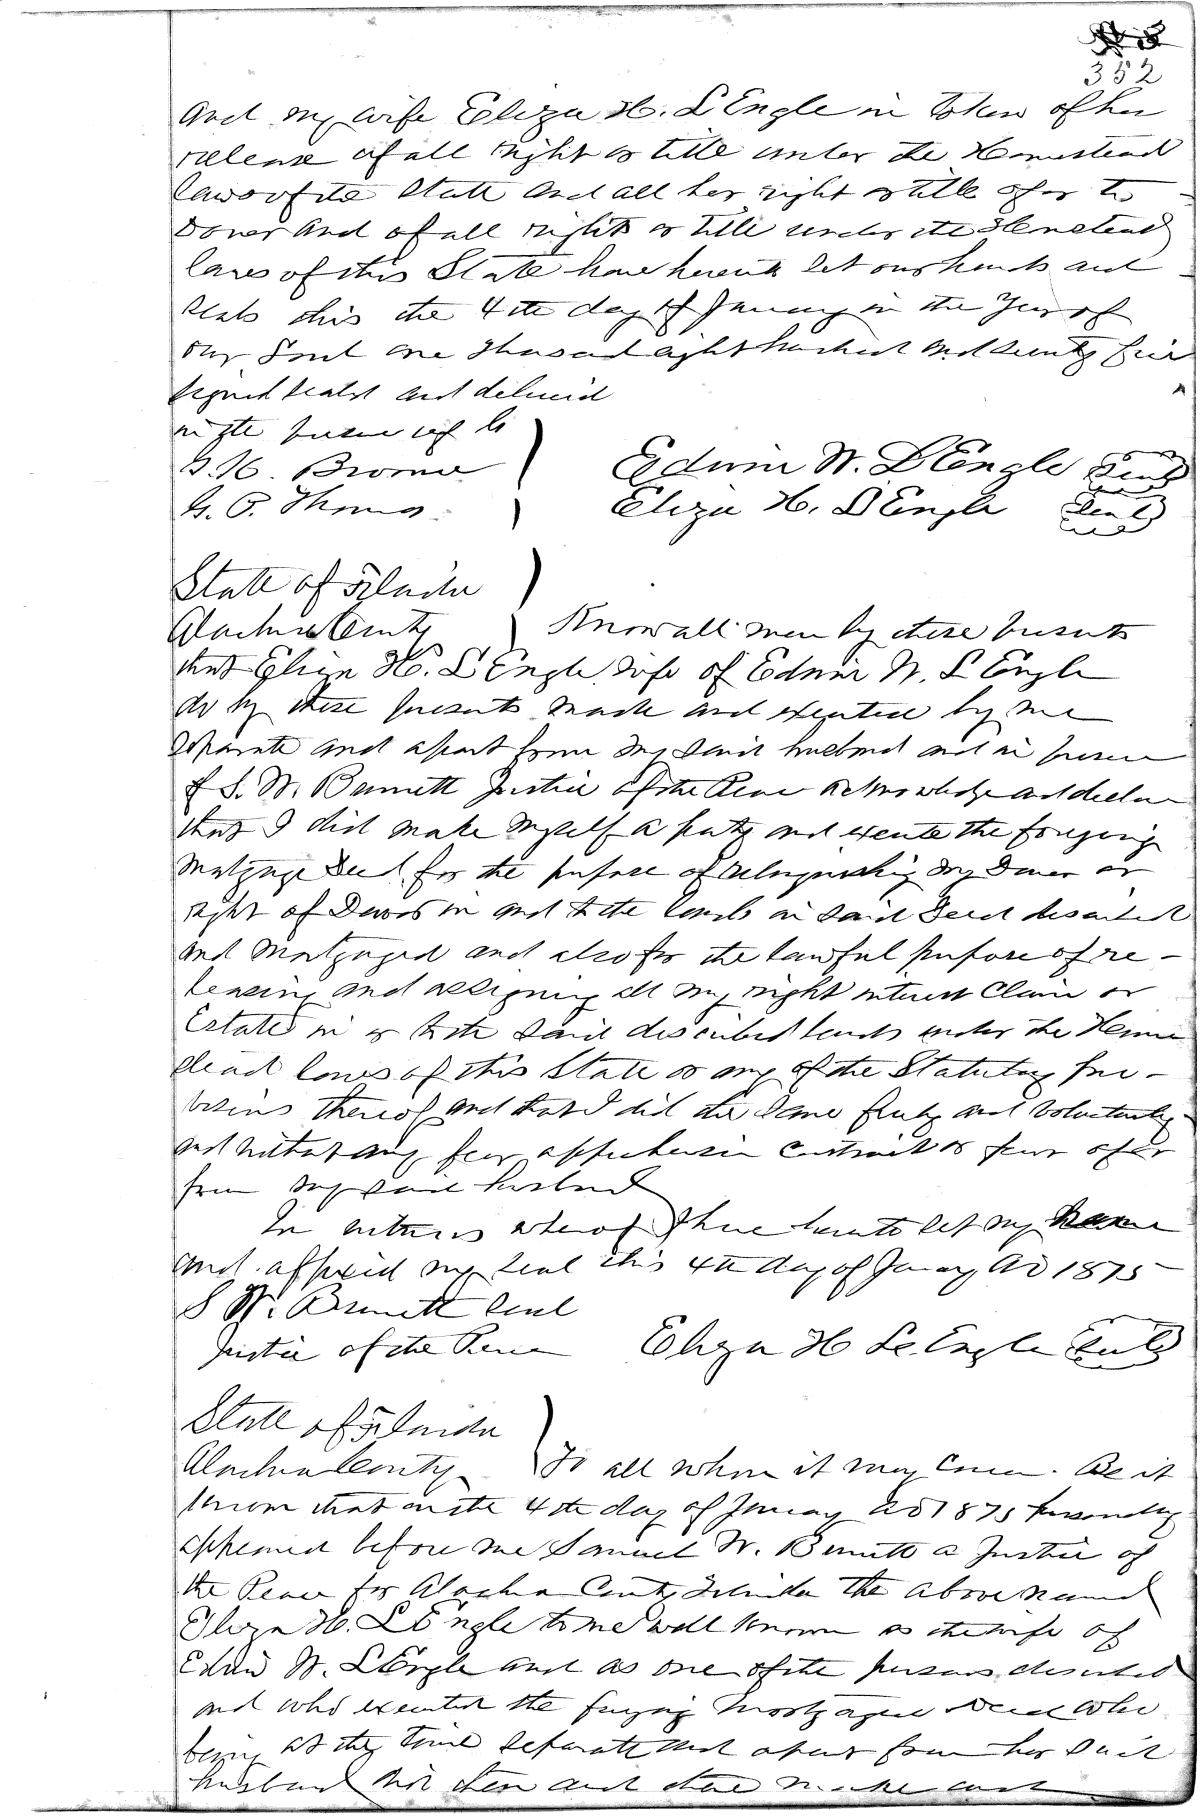 352
and my wife Eliza H. L Engle in token of her
release of all right or title under the Homestead
laws of the State and all her right or title of or to
Dower and of all right or title under the Homestead
laws of this State have hereunto set our hands and
seals this the 4th day of January in the Year of
our Lord one thousand eight hundred and seventy five
signed sealed and delivered
in the presence of
G. H. Browne
G. P. Thomas
Edwin W. L'Engle Seal
Eliza H. L'Engle Seal
State of Florida
Alachua County Know all men by these presents
that Eliza H. L Engle wife of Edwin W. L Engle
do by these presents made and executed by me
separate and apart from my said husband and in presence
of S. W. Burnett Justice of the Peace acknowledge and declare
that I did make myself a party and execute the foregoing
Mortgage Deed for the purpose of relinquishing my Dower or
right of Dower in and to the lands in said Deed described
and Mortgaged and also for the lawful purpose of re-
leasing and assigning all my right interest Claim or
Estate in or to the said described lands under the Home
stead laws of this State or any of the Statutory pro-
visions thereof and that I did the same freely and voluntarily
and without any fear apprehension constraint or fear of or
from my said husband
In witness whereof I have hereunto set my name
and affixed my seal this 4th day of January AD 1875
S W. Burnett Seal
Justice of the Peace Eliza H Le. Engle Seal
State of Florida
Alachua County To all whom it may Concern. Be it
known that on the 4th day of January AD 1875 personally
appeared before me Samuel W. Burnett a Justice of
the Peace for Alachua County Florida the above named
Eliza H. L Engle to me well known as the wife of
Edwin W. L Engle and as one of the persons described
and who executed the foregoing Mortgage Deed who
being at the time separate and apart from her said
husband did then and there make and